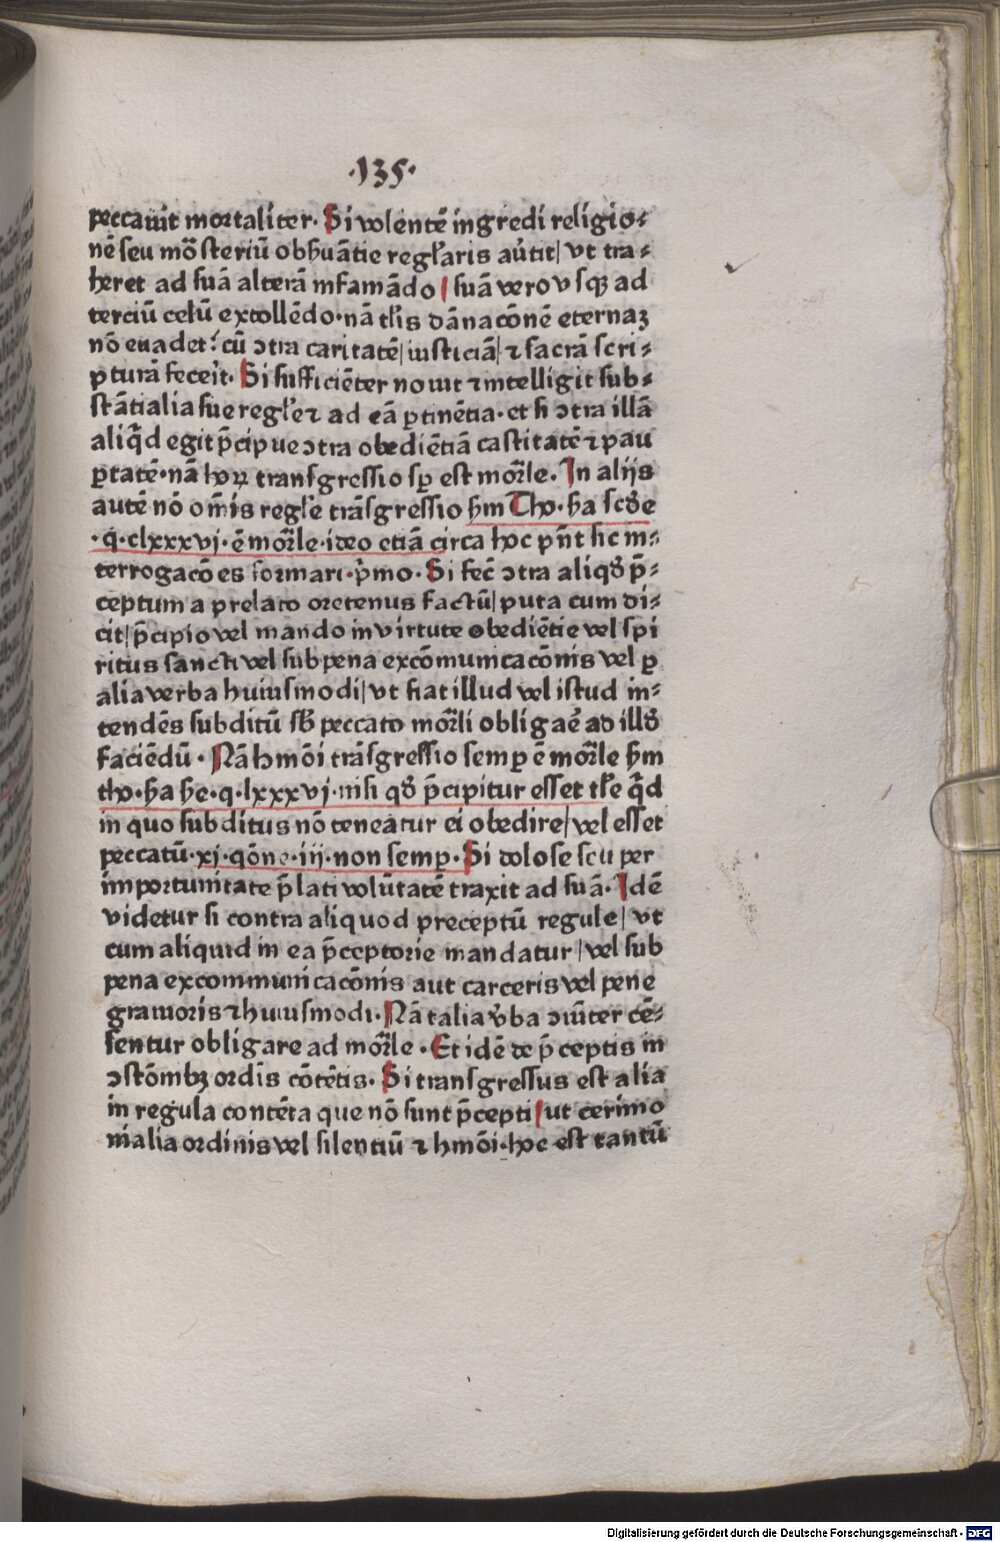 ·135·
peccauit mortaliter. Si volentē ingredi religio⸗
nē seu mōsteriū obhuātie regl'aris aūtit| vt tra⸗
heret ad suā alterā infamādo| suā vero vsqꝫ ad
terciū celū extollēdo·nā tl'is dānacōnē eternaꝫ
nō euadet· cū ↄtra caritatē| iusticiā| ⁊ sacrā scri⸗
pturā fecerit. Si sufficiēter nouit ⁊ intelligit sub⸗
stātialia sue regl'e ⁊ ad eā ꝑtinētia· et si ↄtra illā
aliq̄d egit p̄cipue ↄtra obediētiā castitatē ⁊ pau
ꝑtatē·nā hoꝝ transgressio sꝑ est mor̄le. In alijs
autē nō om̄is regl'e trāsgressio ẜm Tho· ẜa scd'e
·q̄·clxxxvj·ē mor̄le·ideo etiā circa hoc pn̄t sic in⸗
terrogacōes formari·p̄mo·Si fec̄ ↄtra aliqd' p̄⸗
ceptum a prelato oretenus factū| puta cum di⸗
cit| p̄cipio vel mando in virtute obediētie vel spi
ritus sancti vel sub pena excōmunicacōnis vel ꝑ
alia verba huiusmodi| vt fiat illud vel istud in⸗
tendēs subditū sb' peccato mor̄li obligāe ad illd'
faciēdū· Nā hmōi trāsgressio semꝑ ē mor̄le ẜm
tho·ẜa ẜe·q·lxxxvj·nisi qd' p̄cipitur esset tl'e q̄d
in quo subditus nō teneatur ei obedire| vel esset
peccatū·xj·qōne·iij·non semꝑ·Si dolose seu per
importunitate p̄lati volūtatē traxit ad suā·Idē
videtur si contra aliquod preceptū regule| vt
cum aliquid in ea p̄ceptorie mandatur| vel sub
pena excommunicacōnis aut carceris vel pene
grauioris ⁊ huiusmodi·Nā talia v̄ba ↄīter cē⸗
sentur obligare ad mor̄le·Et idē de p̄ceptis in
ↄstōmbꝫ ordīs cōtētis·Si transgressus est alia
in regula contēta que nō sunt p̄cepti| ut cerimo
nialia ordinis vel silentiū ⁊ hmōi·hoc est tantū
Digitalisierung gefördert durch die Deutsche Forschungsgemeinschaft - DFG